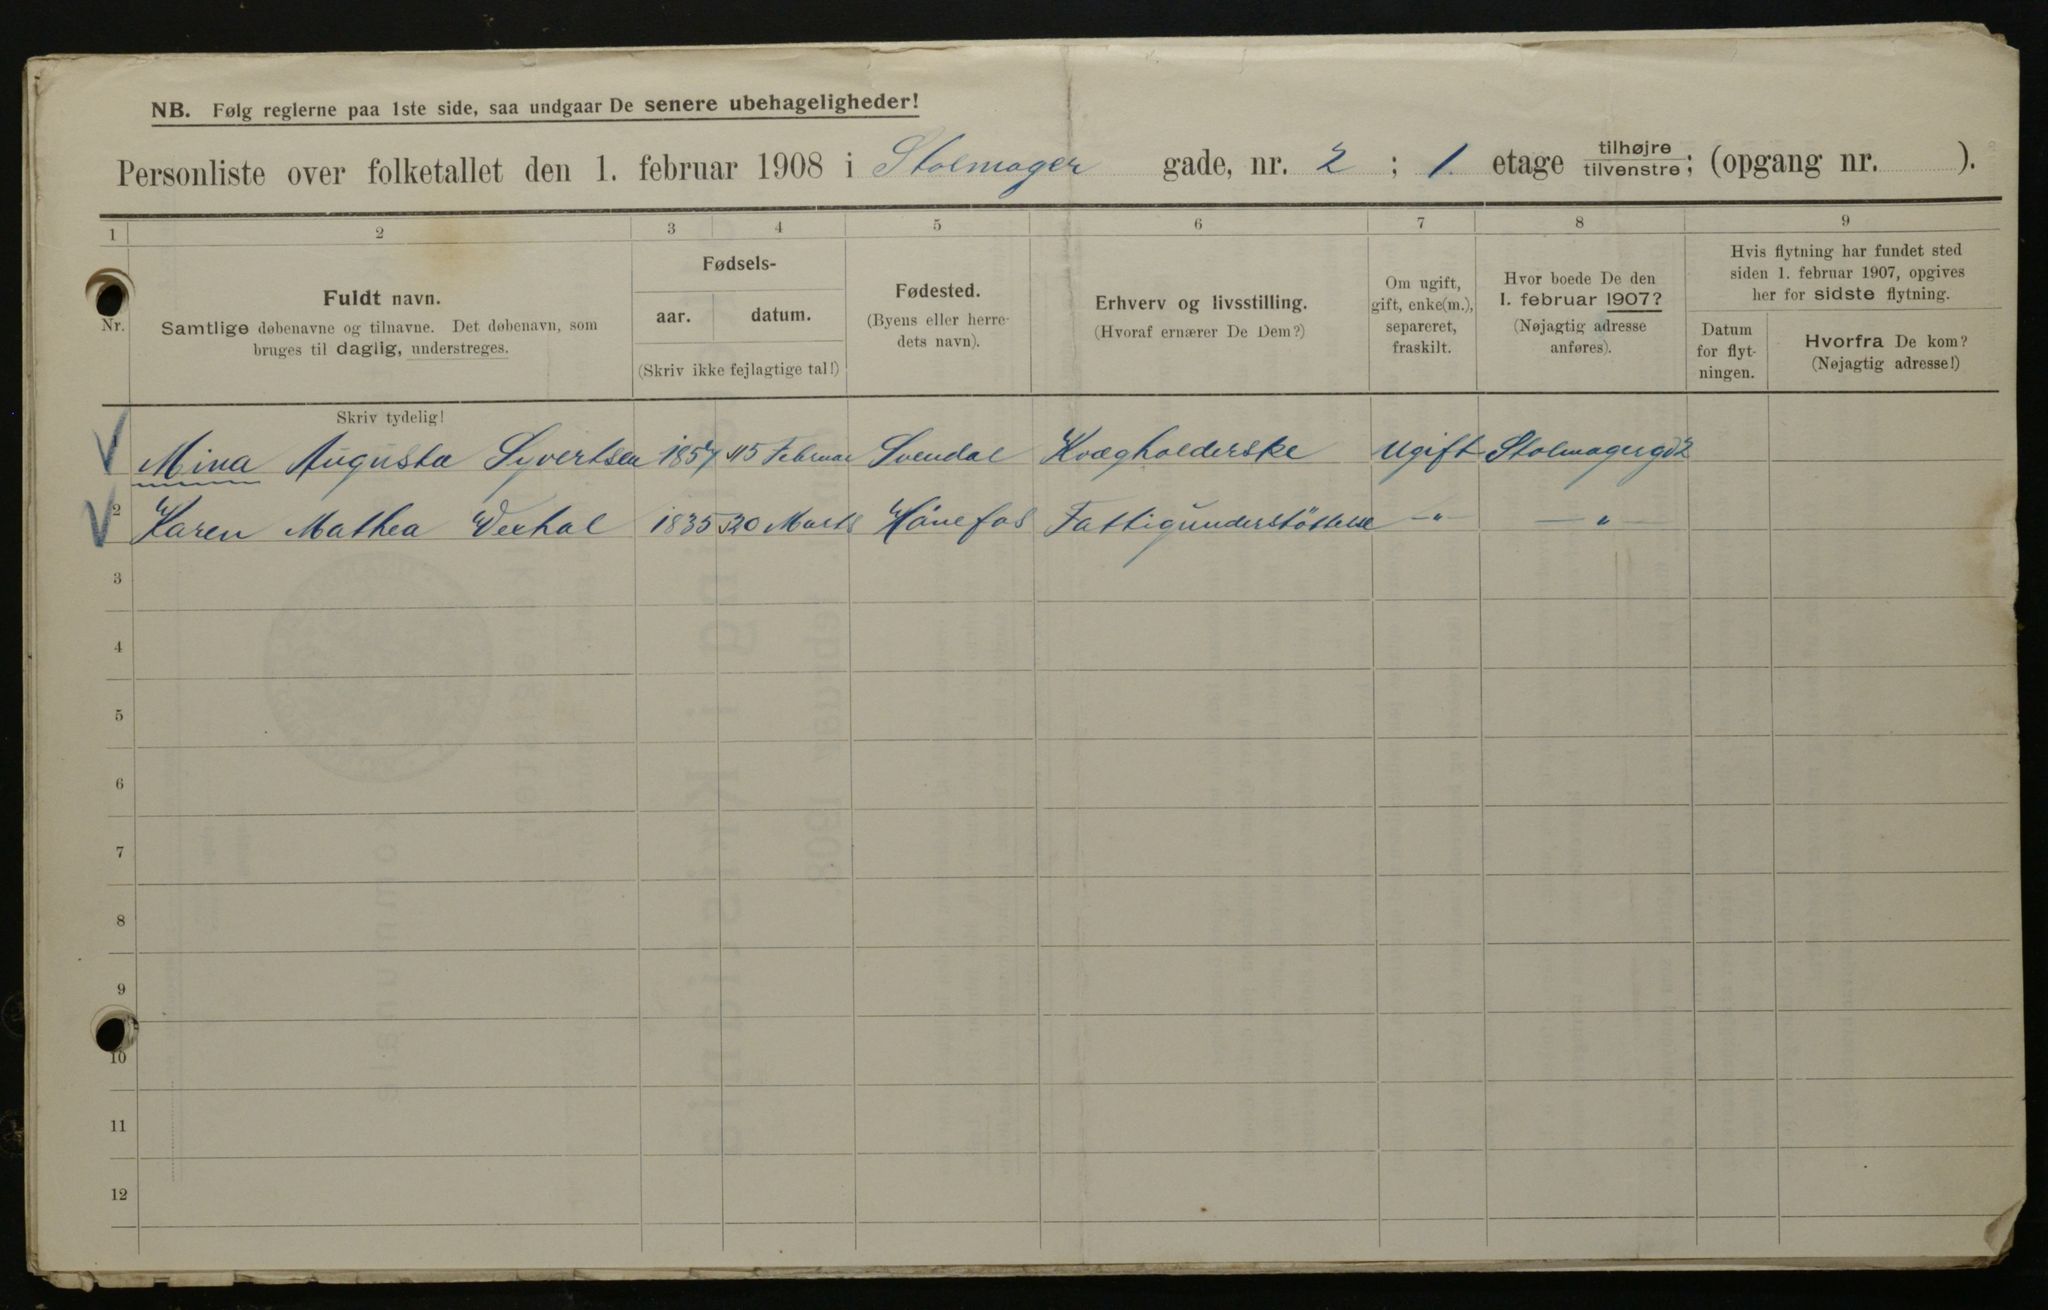 NB. Følg reglerne paa 1ste side, saa undgaar De senere ubehageligheder!
Personliste over folketallet den 1. februar 1908 i Stolmager gade, nr. 2 ; 1. etage tilhøjre tilvenstre; (opgang nr. ).
1 2 3 4 5 6 7 8 9
Nr.
Fuldt navn.
Samtlige døbenavne og tilnavne. Det døbenavn, som
bruges til daglig, understreges.
Fødsels-
aar. datum.
(Skriv ikke fejlagtige tal!)
Fødested.
(Byens eller herre-
dets navn).
Erhverv og livsstilling.
(Hvoraf ernærer De Dem?)
Om ugift,
gift, enke(m.),
separeret,
fraskilt.
Hvor boede De den
1. februar 1907?
(Nøjagtig adresse
anføres).
Hvis flytning har fundet sted
siden 1. februar 1907, opgives
her for sidste flytning.
Datum
for flyt-
ningen.
Hvorfra De kom?
(Nøjagtig adresse!)
Skriv tydelig!
1 Mina Augusta Syvertsen 1857 15 Februar Svendal Kvægholderske Ugift Stolmagergd 2
2 Karen Mathea 1835 20 Marts Hönefos Fattigunderstöttelse —"— —"—
3
4
5
6
7
8
9
10
11
12